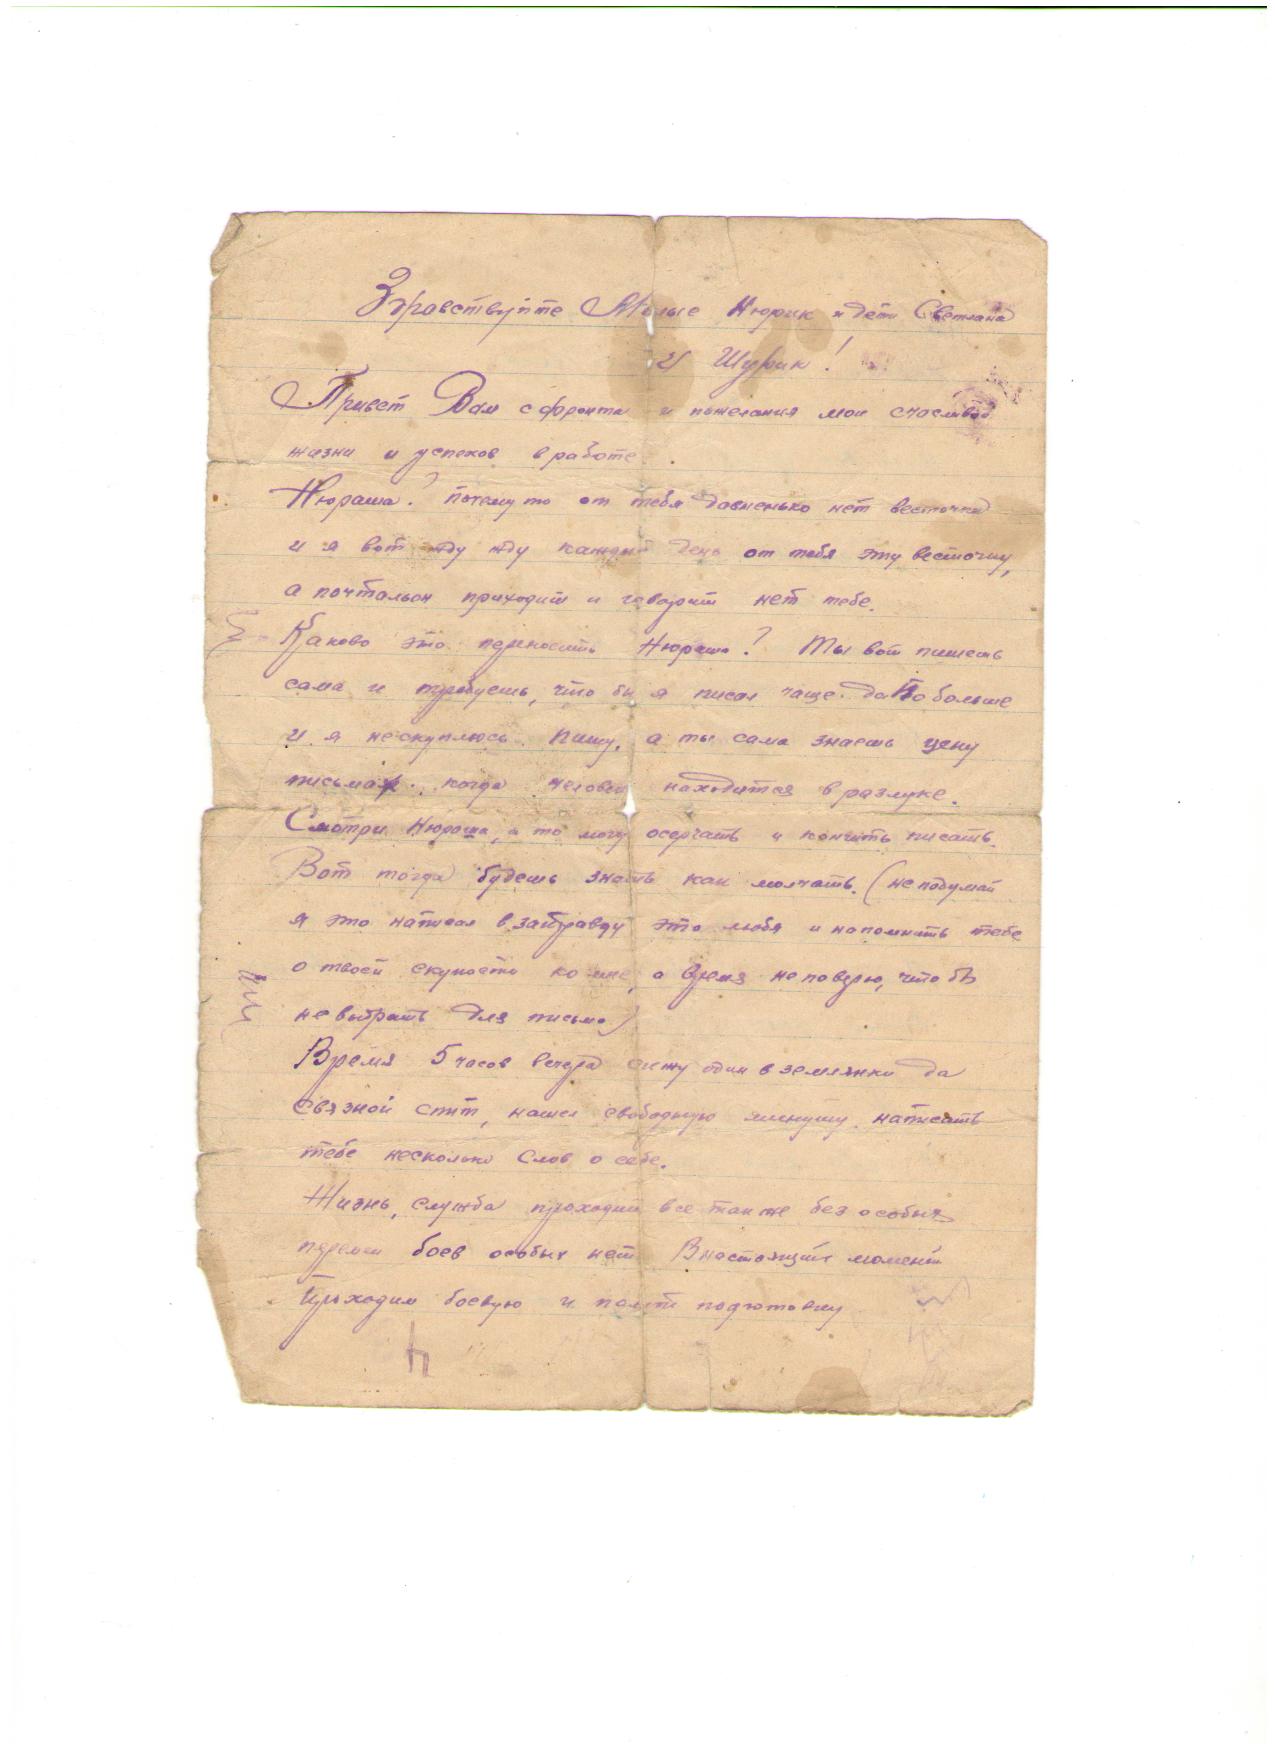 Здравствуйте Милые Нюрик и дети Светлана
и Шурик!
Привет Вам с фронта и пожелания мои счасливой
жизни и успехов в работе.
Нюраша! почему то от тебя давненько нет весточки
и я вот жду жду каждый день от тебя эту весточку,
а почтальон приходит и говорит нет тебе.
Каково это переносить Нюраша? Ты вот пишешь
сама и требуешь, что бы я писал чаще. да по больше
и я нескуплюсь. пишу. а ты сама знаешь цену
письма. когда человек находится в разлуке.
Смотри Нюраша, а то могу осерчать и кончить писать.
Вот тогда будешь знать как молчать. (не подумай
я это написал взаправду это любя и напомнить тебе
о твоей скупости ко мне, а время не поверю, что бы
не выбрать для письма)
Время 5 часов вечера сижу один в землянки да
связной спит, нашел свободную минуту. написать
тебе несколько слов о себе.
Жизнь, служба проходит все также без особых
перемен боев особых нет. В настоящий момент
проходим боевую и полит подготовку